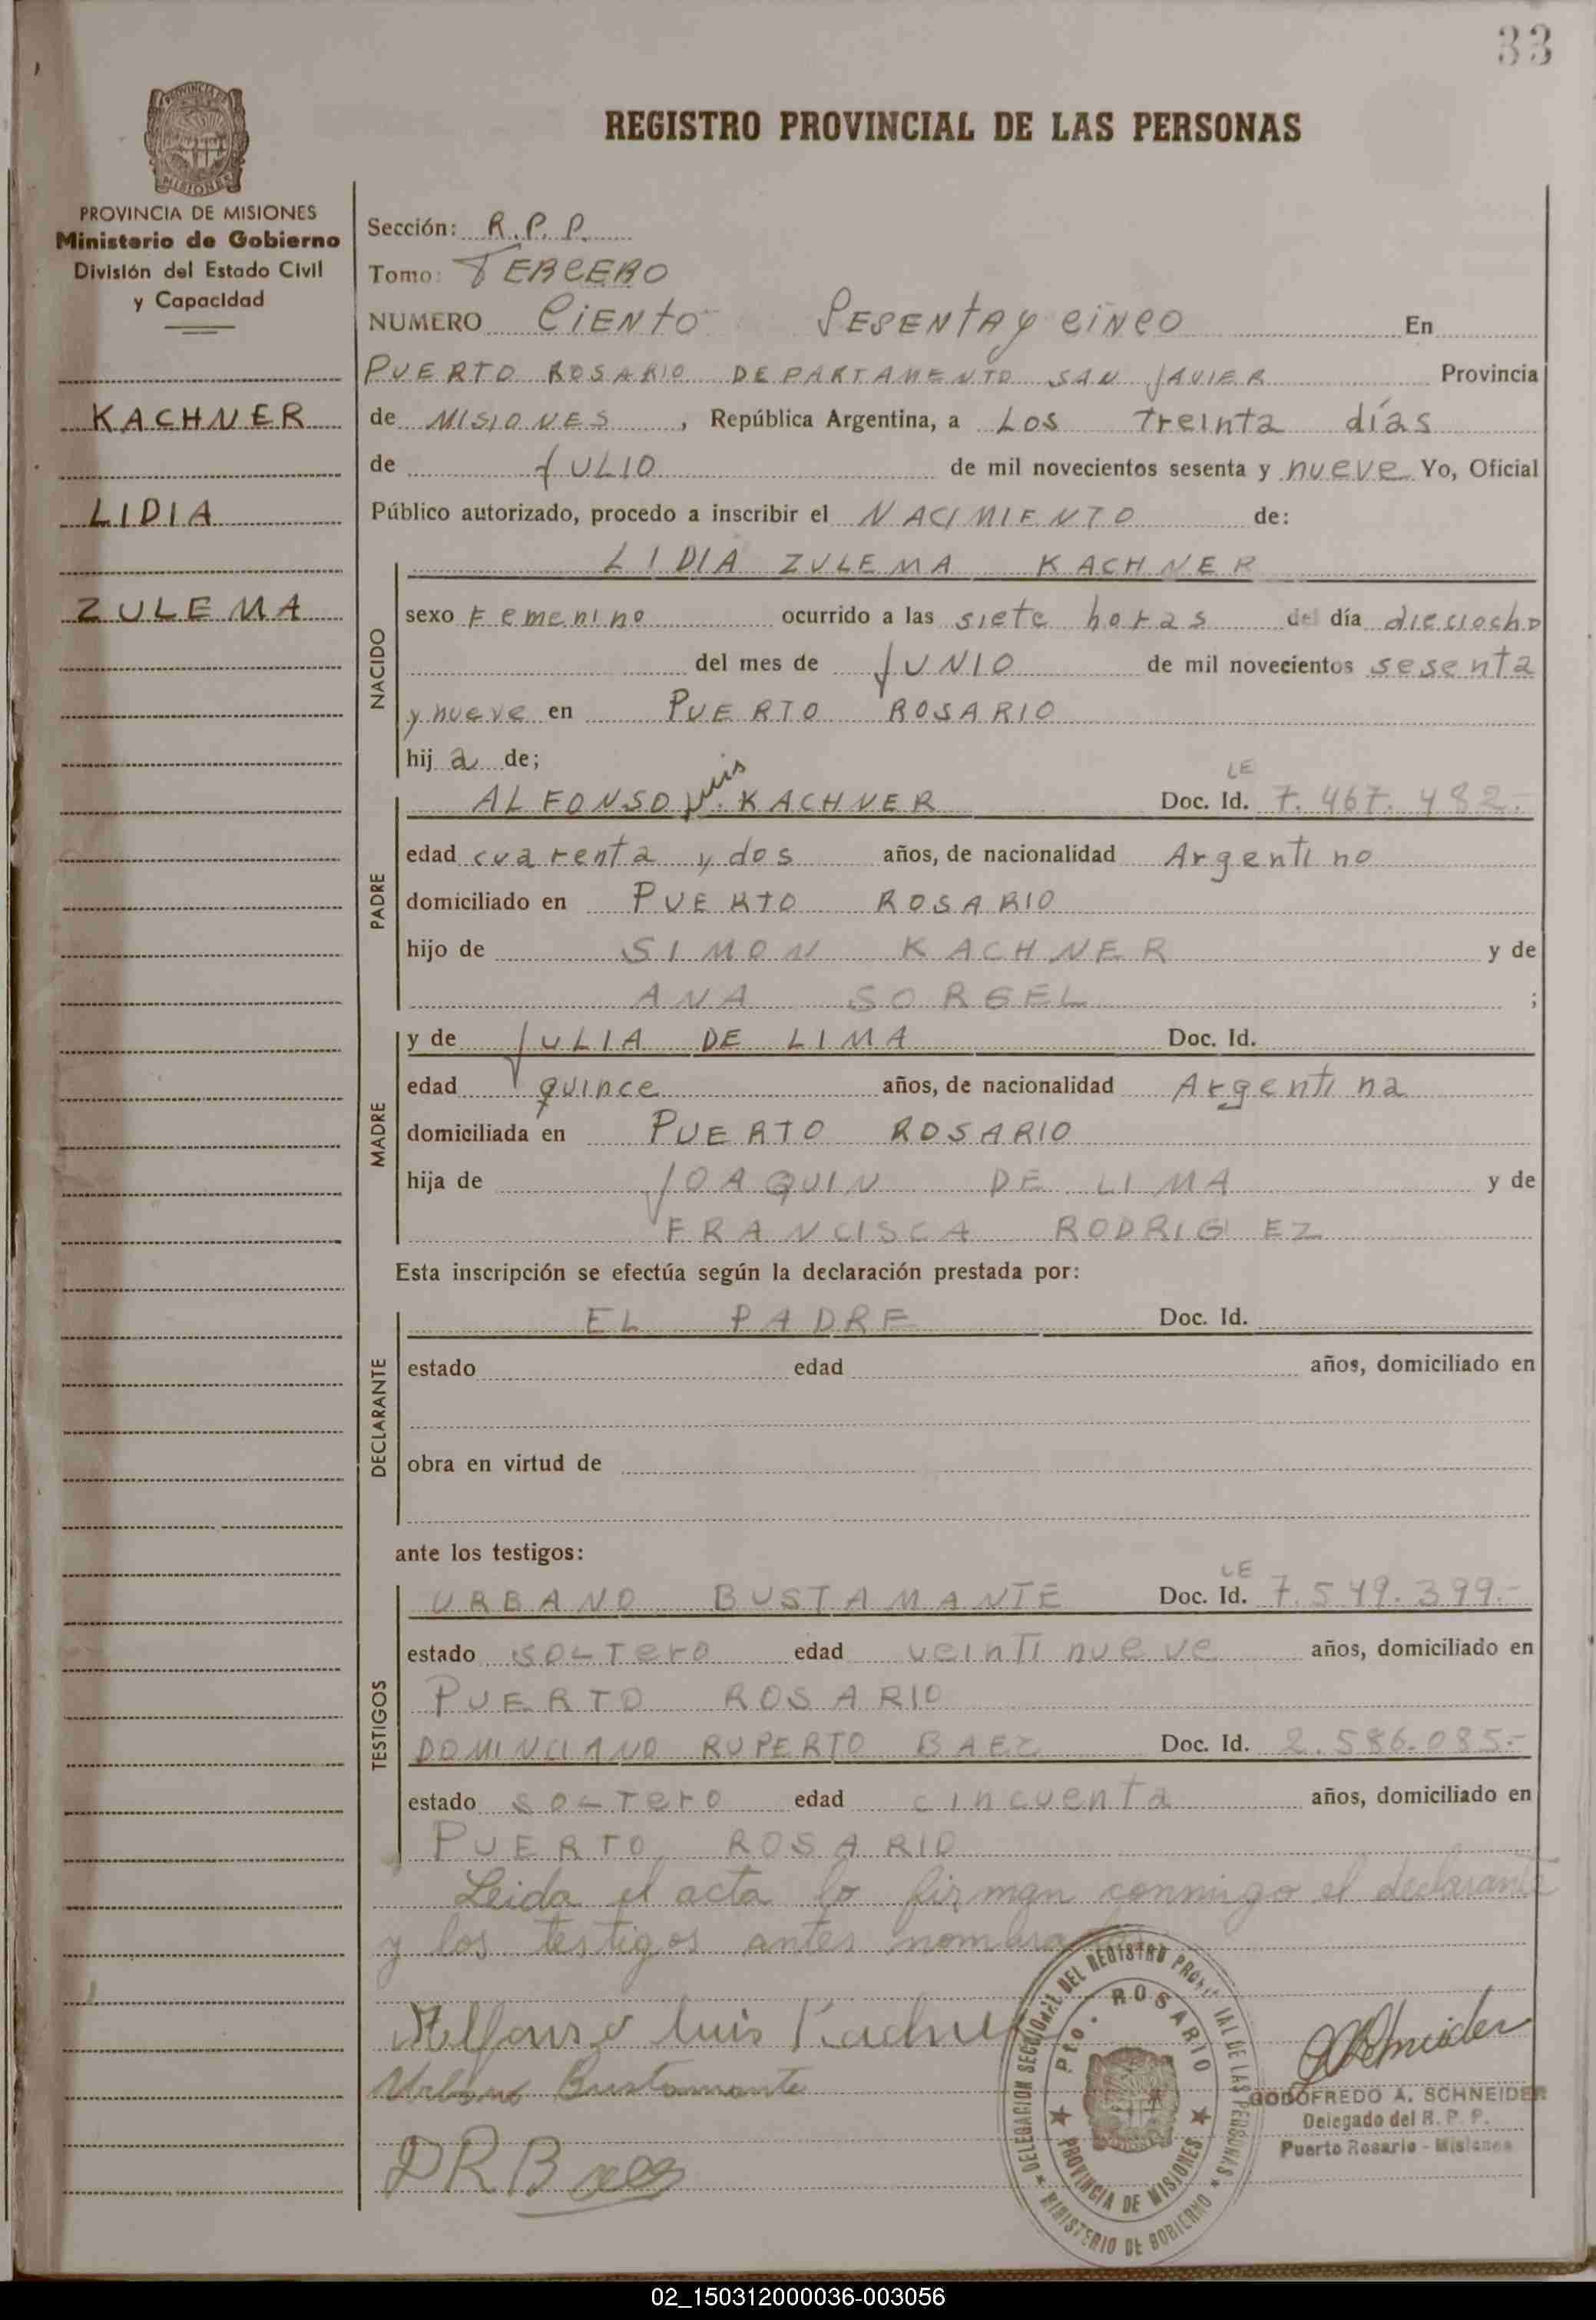 33
REGISTRO PROVINCIAL DE LAS PERSONAS
MISIONES
PROVINCIA DE MISIONES
Ministerio de Gobierno
División del Estado Civil
y Capacidad
KACHNER
LIDIA
ZULEMA
Sección: R.P.P.
Tomo: TERCERO
NUMERO CIENTO SESENTA y CINCO En
PUERTO ROSARIO DEPARTAMENTO SAN JAVIER Provincia
de MISIONES , República Argentina, a Los treinta días
de JULIO de mil novecientos sesenta y nueve Yo, Oficial
Público autorizado, procedo a inscribir el NACIMIENTO de:
NACIDO
LIDIA ZULEMA KACHNER
sexo Femenino ocurrido a las siete horas del día dieciocho
del mes de JUNIO de mil novecientos sesenta
y nueve en PUERTO ROSARIO
hij a de;
PADRE
LE
ALFONSO Luis KACHNER Doc. Id. 7.467.482.-
edad cuarenta y dos años, de nacionalidad Argentino
domiciliado en PUERTO ROSARIO
hijo de SIMON KACHNER y de
ANA SORGEL ;
MADRE
y de JULIA DE LIMA Doc. Id.
edad quince años, de nacionalidad Argentina
domiciliada en PUERTO ROSARIO
hija de JOAQUIN DE LIMA y de
FRANCISCA RODRIG EZ
Esta inscripción se efectúa según la declaración prestada por:
DECLARANTE
EL PADRE Doc. Id.
estado edad años, domiciliado en
obra en virtud de
ante los testigos:
TESTIGOS
LE
URBANO BUSTAMANTE Doc. Id. 7.549.399.-
estado SOLTero edad veintinueve años, domiciliado en
PUERTO ROSARIO
DOMINCIANO RUPERTO BAEZ Doc. Id. 2.586.085.-
estado SOLTero edad cincuenta años, domiciliado en
PUERTO ROSARIO
Leida el acta lo firman conmigo el declarante
y los testigos antes nombrados
Alfonso Luis Kachner
Urbano Bustamante
DRBaez
DELEGACION SECCIONAL DEL REGISTRO PROVINCIAL DE LAS PERSONAS
Pto. ROSARIO
PROVINCIA DE MISIONES
MINISTERIO DE GOBIERNO
Schneider
GODOFREDO A. SCHNEIDER
Delegado del R. P. P.
Puerto Rosario - Misiones
02_150312000036-003056